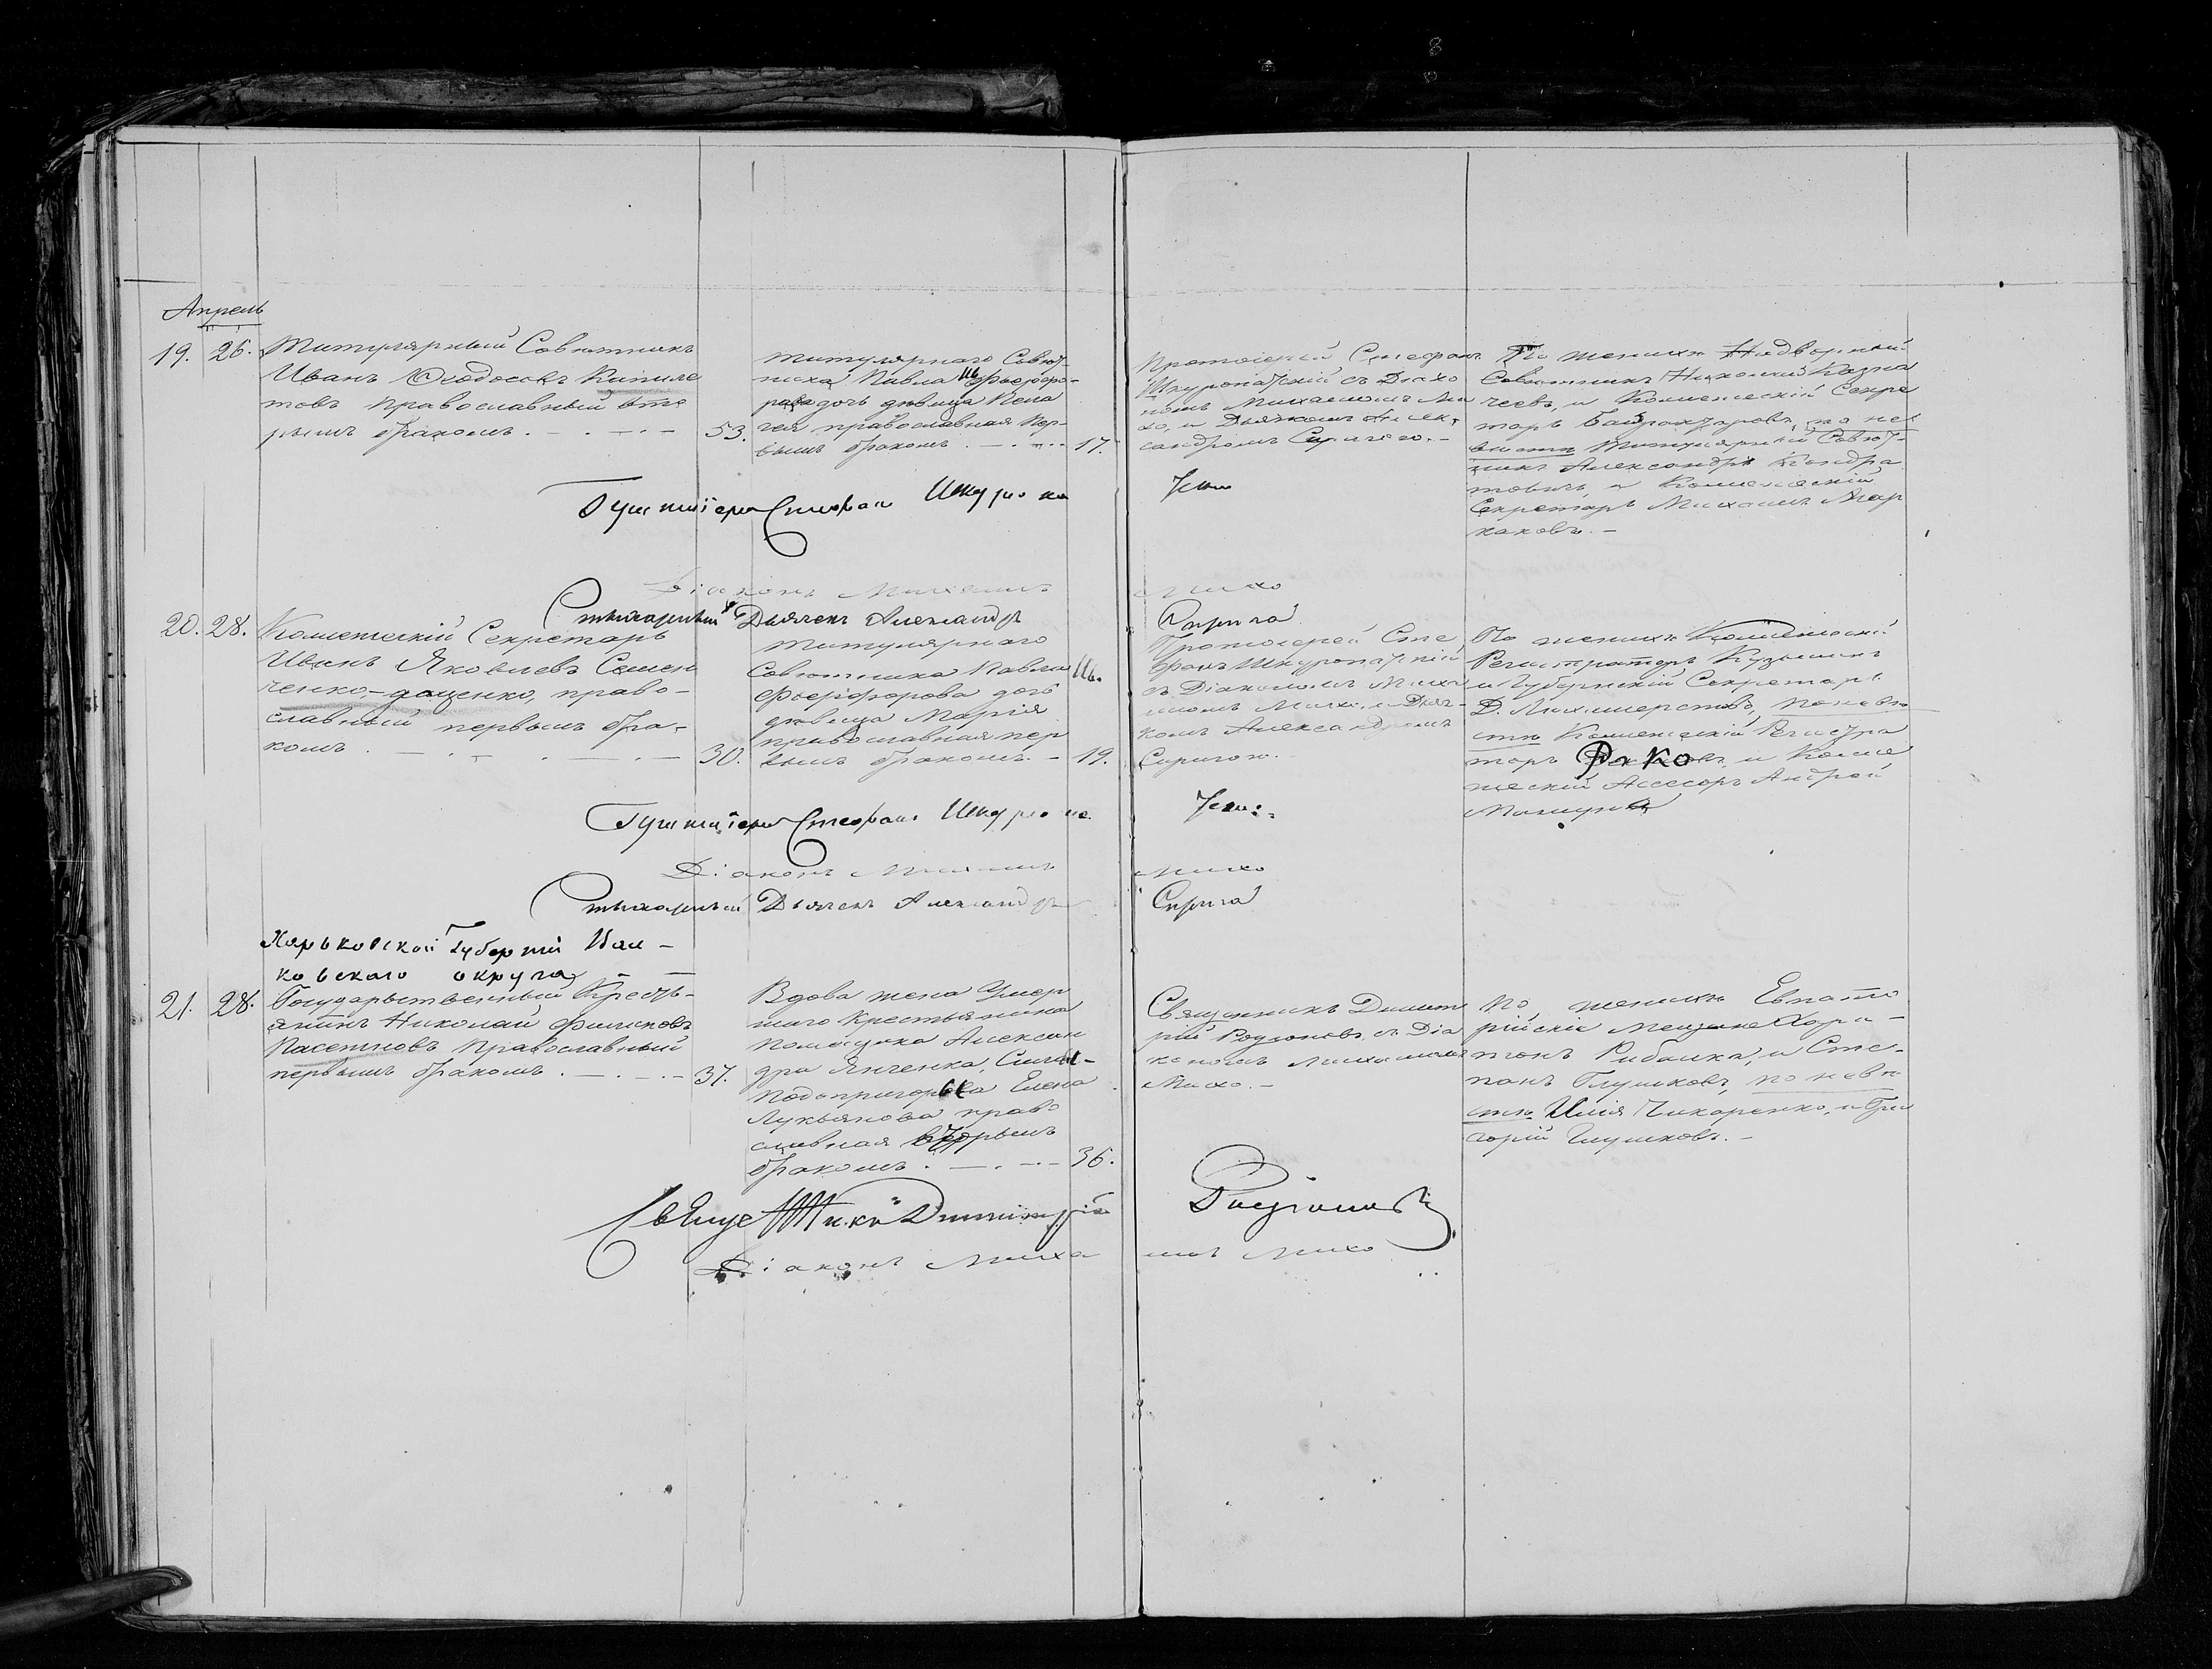 Апрель
19. 26. Титулярный Советникъ
Иванъ Ѳеодосовъ Капиле
товъ православный вто
рымъ бракомъ. 53.
титулярнаго Совѣт-
ника Павла
дочь дѣвица Пела
гея православная пер-
вымъ бракомъ. 17.
Протоіерей Стефанъ
Шкуропатскій съ Діако
номъ Михаиломъ Ми
хо, и Дьячкомъ Алек
сандромъ Сиричею.
По женихѣ Надворный
Совѣтникъ Николай Казна
чеевъ, и Коллежскій Секре
тарь по не
вѣстѣ Титулярный Совѣт-
никъ Александръ Кондра
товичъ, и Коллежскій
Секретарь Михаилъ Мар
каковъ.
Протоіерей Стефан Шкуропа
Діаконъ Михаилъ Михо
Стихарный Дьячекъ Александръ Сирича
20. 28. Коллежскій Секретарь
Иванъ Яковлевъ Семен
ченко-даценко, право-
славный первымъ бра-
комъ. 30.
Титулярнаго
Совѣтника Павла
дочь
дѣвица Марія
православная пер
вымъ бракомъ. 19.
Протоіерей Сте
фанъ Шкуропатскій
съ Діакономъ Миха
иломъ Михо, и Дьяч-
комъ Александромъ
Сиричею.
По женихѣ Коллежскій
Регистраторъ Кузьминъ
и Губернскій Секретарь
Д. по невѣ
стѣ Коллежскій Регистра
торъ и Колле
жскій Асессоръ Андрей
Протоіерей Стефанъ Шкуропа
Діаконъ Михаилъ Михо
Стихарный Дьячекъ Александръ Сирича
Харьковской Губерніи Вал-
ковскаго округа
21. 28. Государственный Кресть-
янинъ Николай Филиповъ
Пасетновъ православный
первымъ бракомъ. 37.
Вдова жена умер
шаго Крестьянина
помѣщика Алексан
дра Янченка,
Елена
Лукьянова право
славная вторымъ
бракомъ. 36.
Священникъ Димит
рій Родіоновъ съ Діа
кономъ Михаиломъ
Михо.
По женихѣ Евпато
рійскіе Мещане Хари-
тонъ Рибалка, и Сте-
панъ Глушковъ, по невѣ
стѣ Илія Чикаренко, и Гри
горій Глушковъ.
Священникъ Димитрій Родіоновъ
Діаконъ Михаилъ Михо